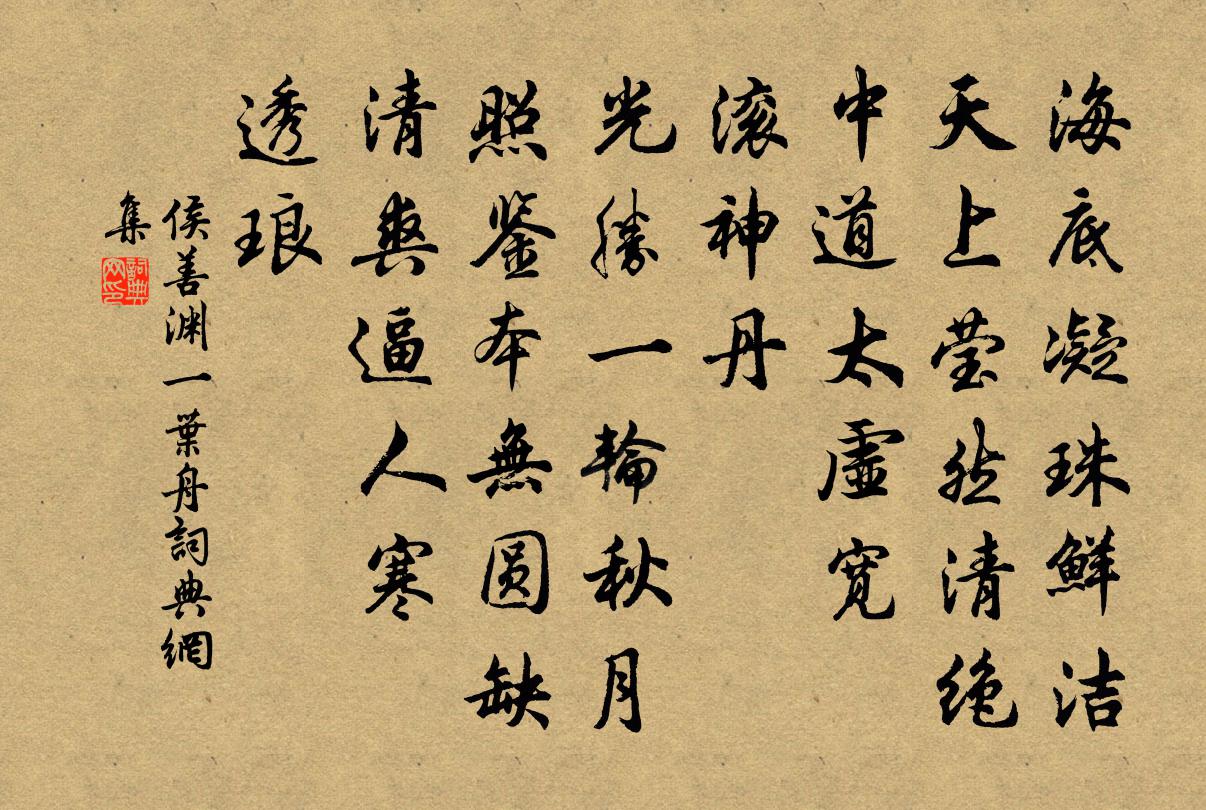 海底凝珠鲜洁
天上莹然清绝
中道太虚宽
滚神丹
光胜一轮秋月
照鉴本无圆缺
清爽逼人寒
透琅
侯善渊一葉舟詞典網
集
詞典網印